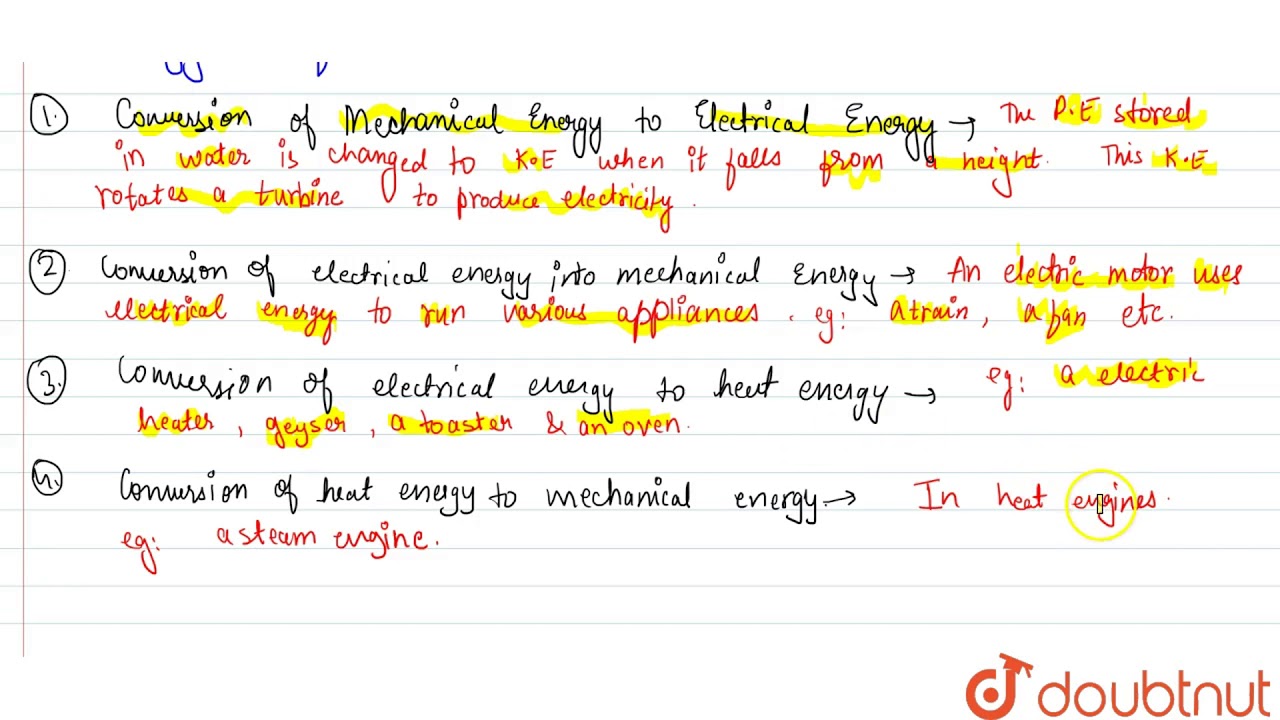 1. Conversion of Mechanical Energy to Electrical Energy → The P.E stored
in water is changed to K.E when it falls from a height. This K.E
rotates a turbine to produce electricity.
2 Conversion of electrical energy into mechanical Energy → An electric motor uses
electrical energy to run various appliances. eg: a train, a fan etc.
3. Conversion of electrical energy to heat energy → eg: a electric
heater, geyser, a toaster & an oven.
4. Conversion of heat energy to mechanical energy. → In heat engines.
eg: a steam engine.
doubtnut